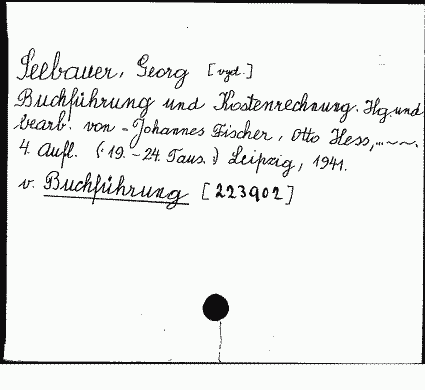 Seebauer, Georg [vyd.]
Buchführung und Kostenrechnung. Hg. und
bearb. von - Johannes Fischer, Otto Hess, ...~~~.
4. Aufl. (19.-24. Taus.) Leipzig, 1941.
v. Buchführung [223902]